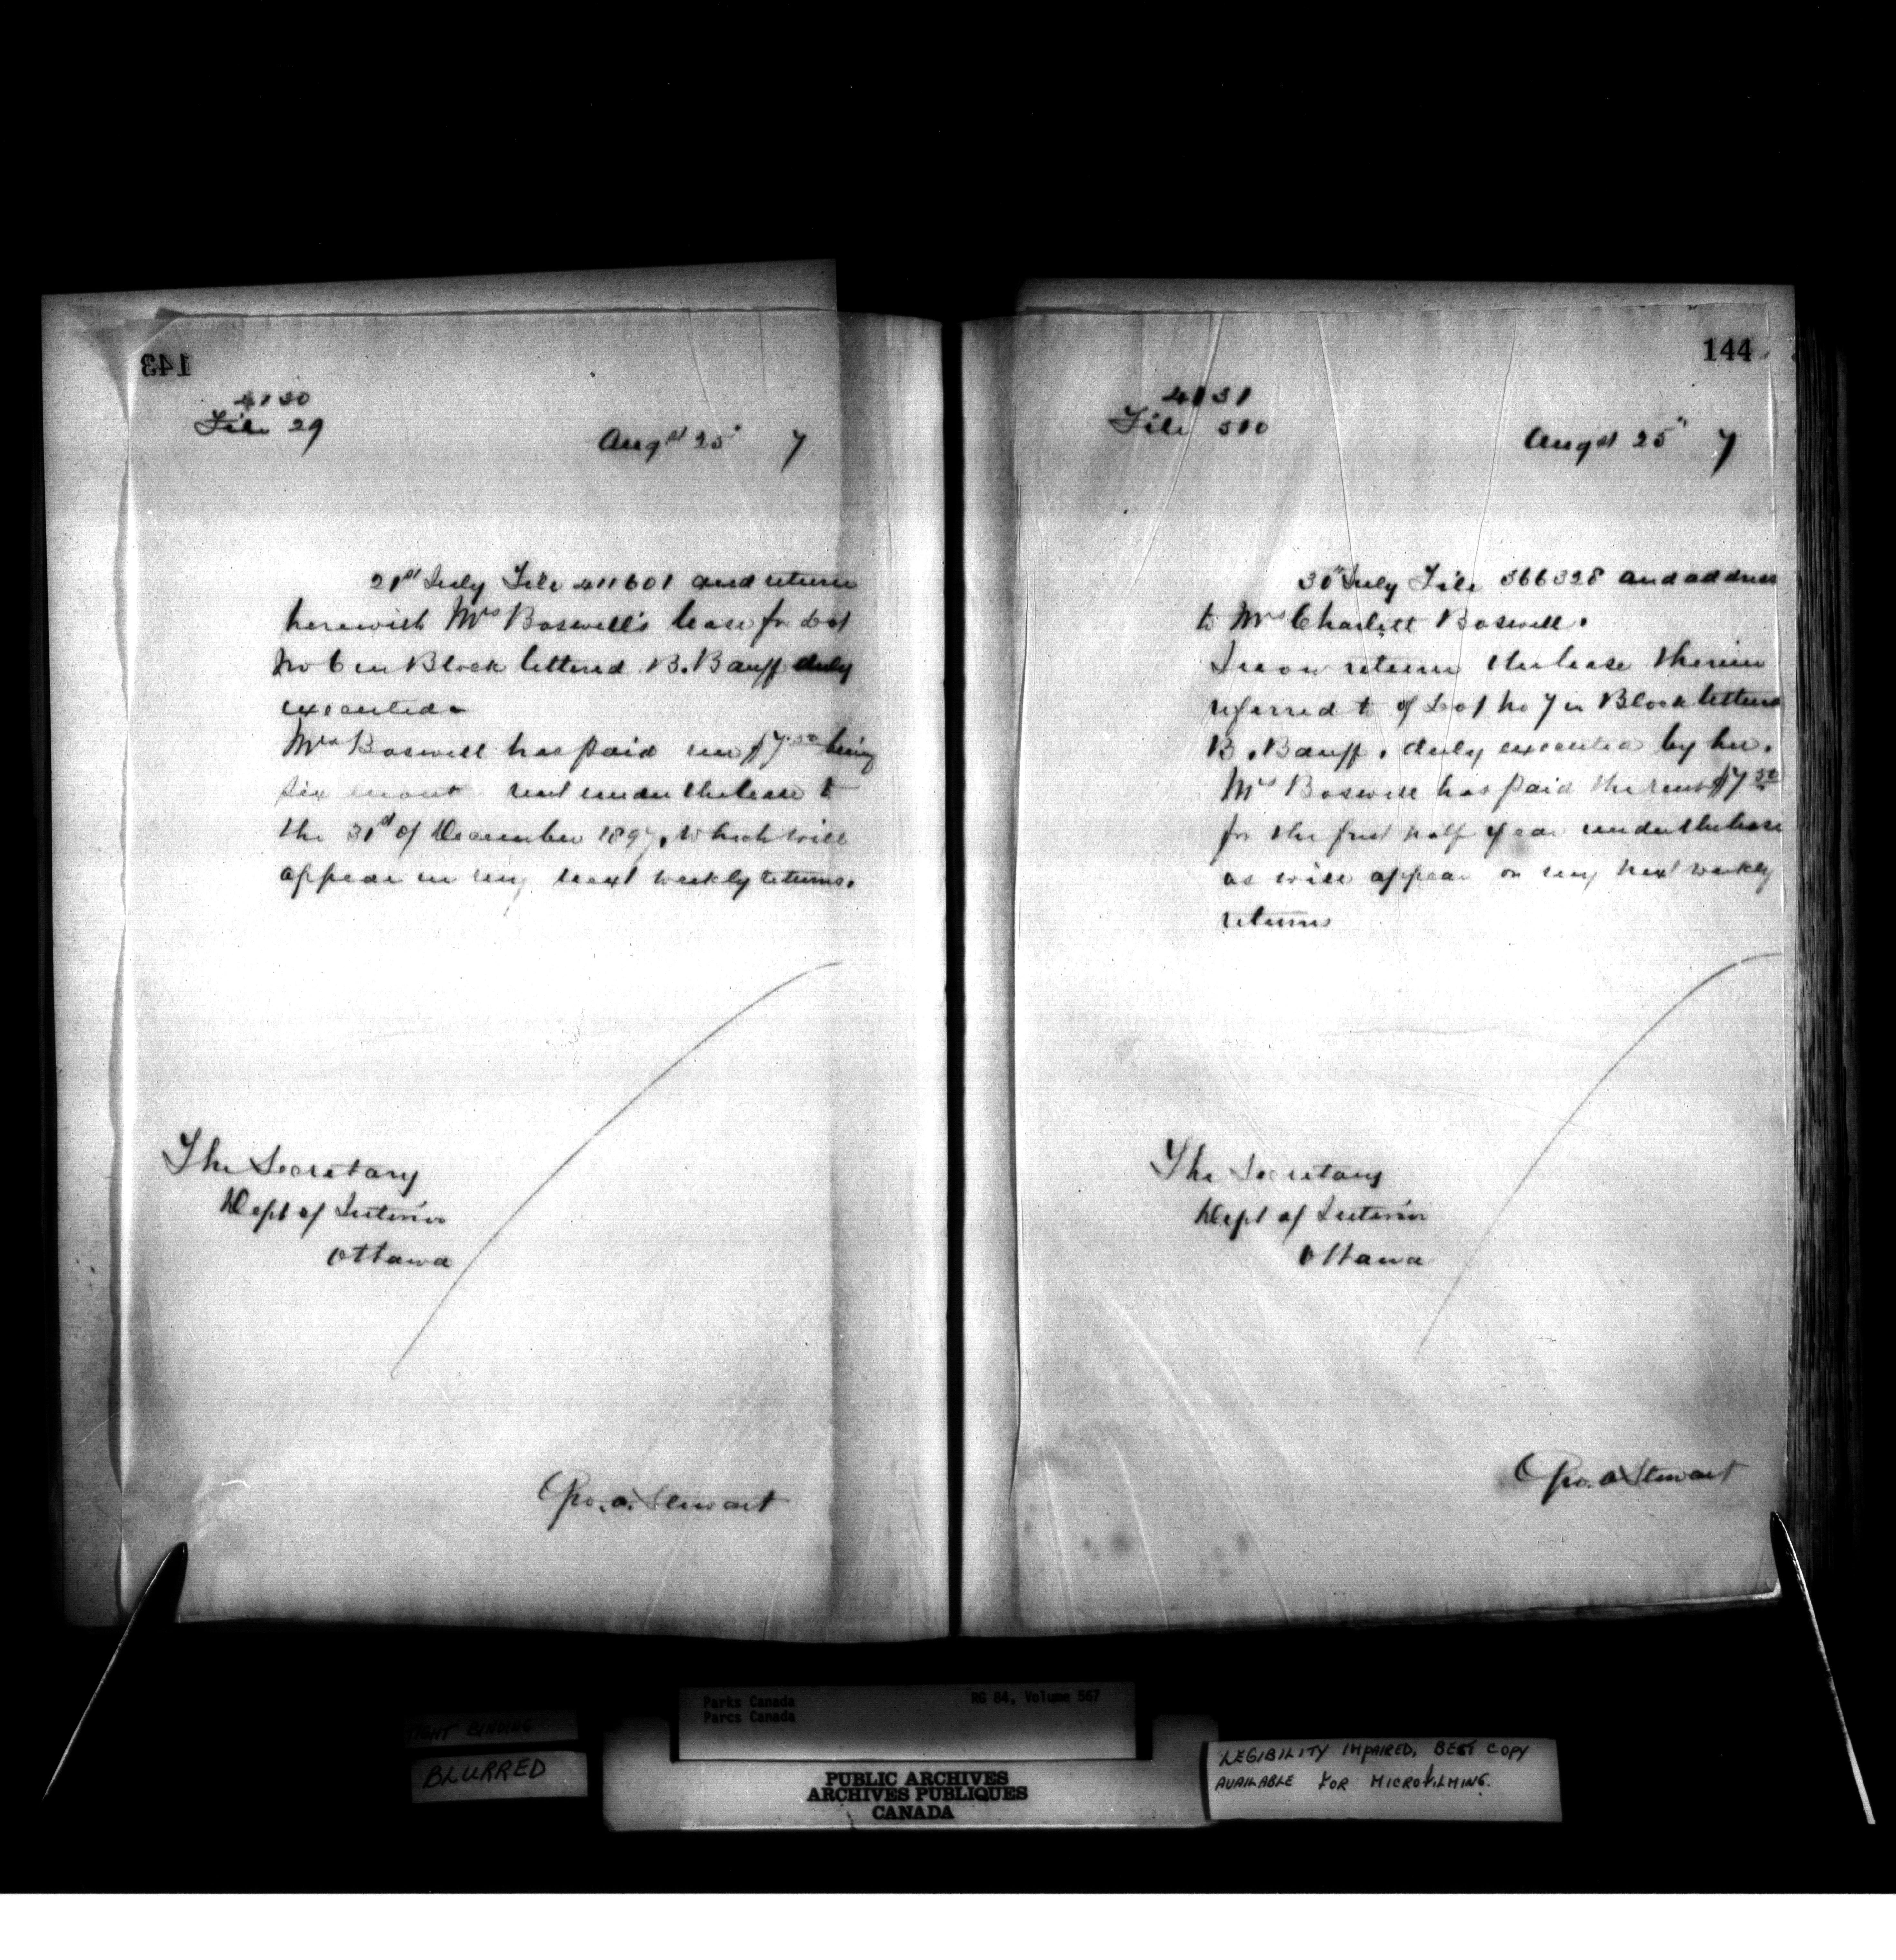 143
4130
File 29
Augst 25" 7
21st July File 411601 and return
herewith Mrs Boswell's lease for Lot
No 6 in Block lettered B. Banff duly
executed
Mrs Boswell has paid me $7.50 being
six mont rent under the lease to
the 31st of December 1897, which will
appear in my next weekly returns.
The Secretary
Dept of Interior
Ottawa
Geo. A. Stewart
144
4131
File 510
Augst 25" 7
30th July File 366328 and address
to Mrs Charlett Boswell.
I now return the lease therein
referred to of Lot No 7 in Block lettered
B. Banff, duly executed by her.
Mrs Boswell has paid the rent $7.50
for the first half year under the lease
as will appear on my next weekly
returns
The Secretary
Dept of Interior
Ottawa
Geo. A Stewart
Parks Canada RG 84, Volume 567
Parcs Canada
TIGHT BINDING
BLURRED
PUBLIC ARCHIVES
ARCHIVES PUBLIQUES
CANADA
LEGIBILITY IMPAIRED, BEST COPY
AVAILABLE FOR MICROFILMING.